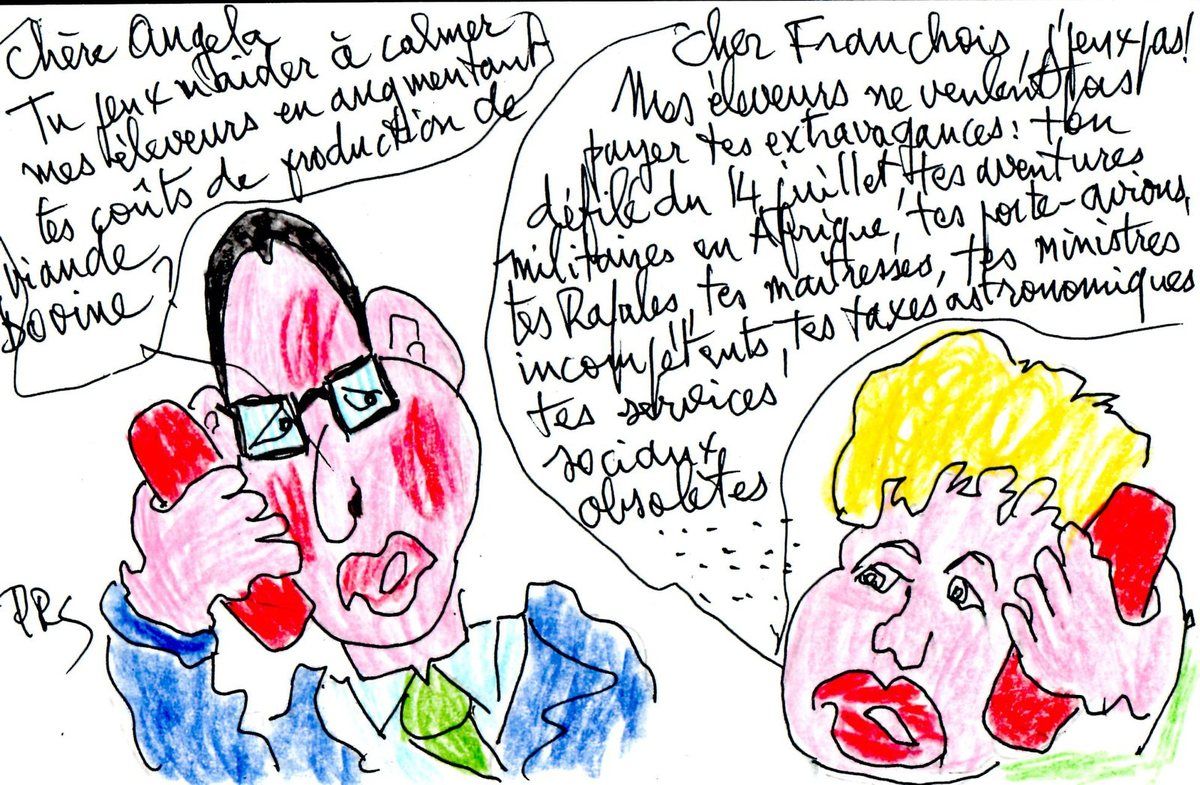 Chère Angela
Tu peux m'aider à calmer
mes éleveurs en augmentant
tes coûts de production de
viande
bovine ?
Cher Franchois, j'peux pas !
Mes éleveurs ne veulent pas
payer tes extravagances : ton
défilé du 14 juillet, tes aventures
militaires en Afrique, tes porte-avions,
tes Rafales, tes maîtresses, tes ministres
incompétents, tes taxes astronomiques
tes services
sociaux
obsolètes